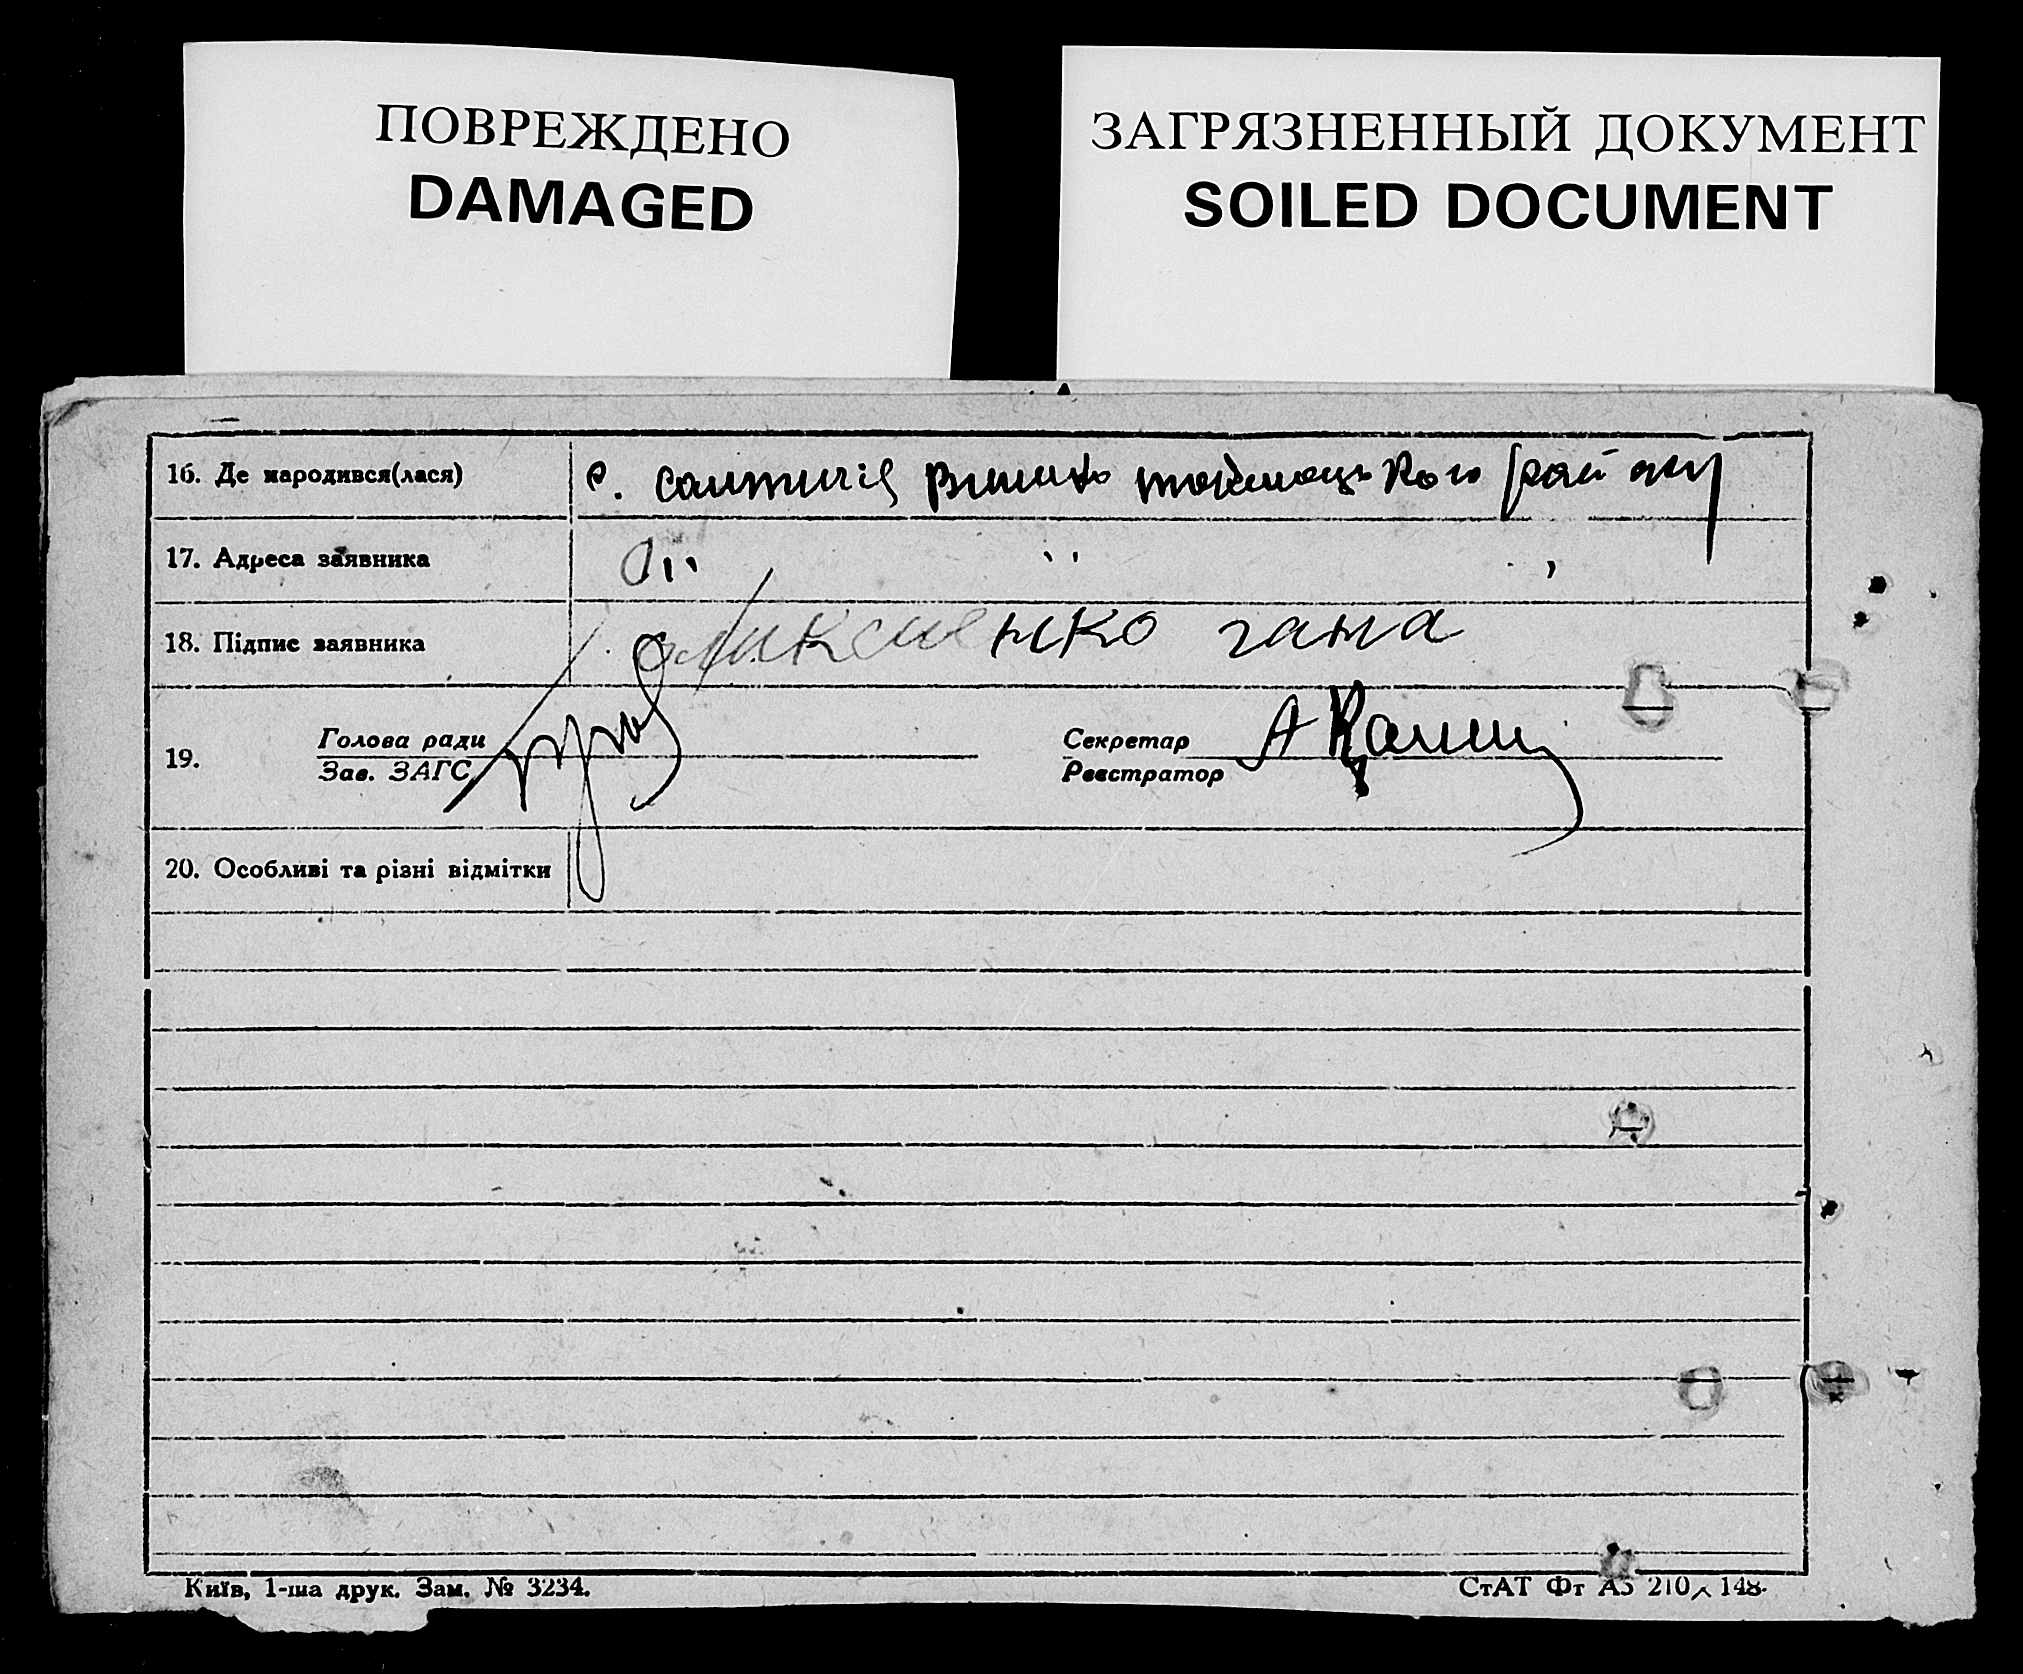 ПОВРЕЖДЕНО
DAMAGED
ЗАГРЯЗНЕННЫЙ ДОКУМЕНТ
SOILED DOCUMENT
16. Де народився(лася) с. району
17. Адреса заявника
18. Підпис заявника гана
19. Голова ради
Зав. ЗАГС
Секретар
Реєстратор
20. Особливі та різні відмітки
Київ, 1-ша друк. Зам. № 3234.
СтАТ Фт А5 210 × 148